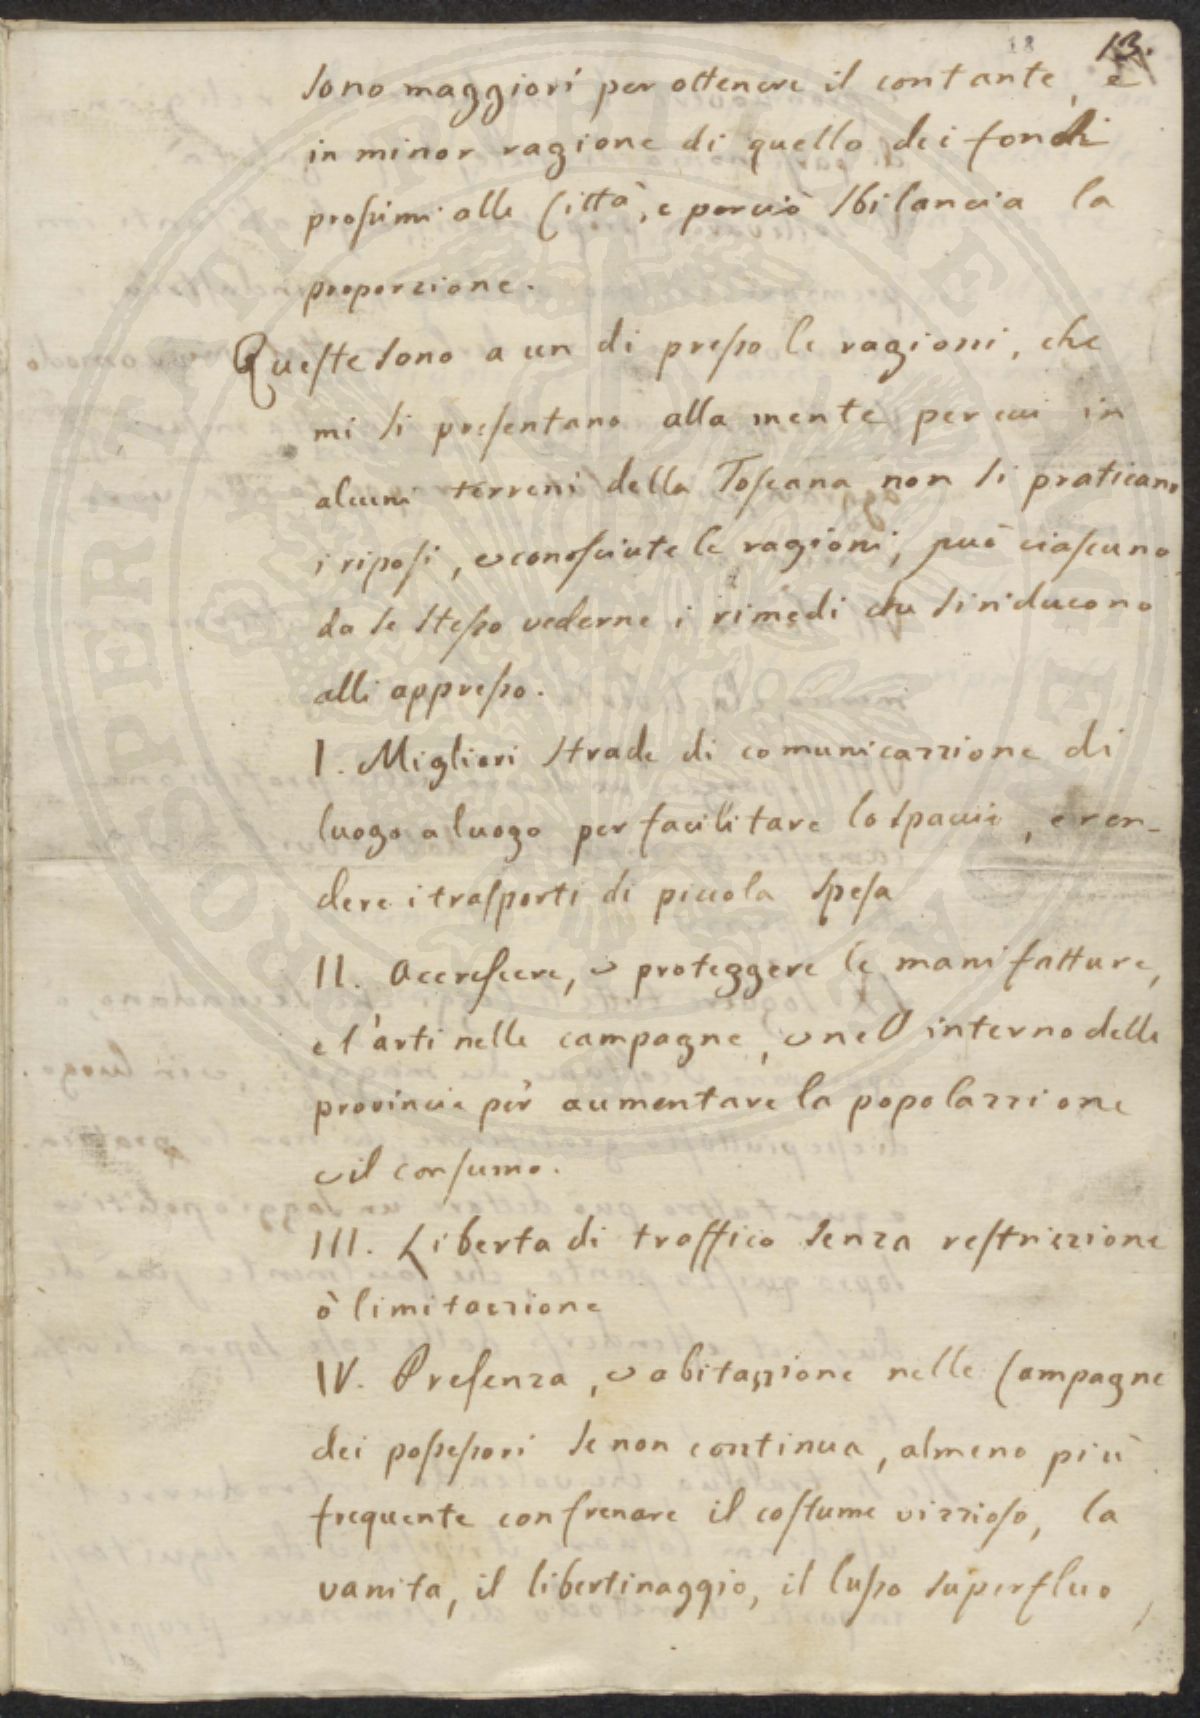 18 13.
sono maggiori per ottenere il contante, e
in minor ragione di quello dei fondi
prossimi alle Città, e perciò sbilancia la
proporzione.
Queste sono a un di presso le ragioni, che
mi si presentano alla mente per cui in
alcuni terreni della Toscana non si praticano
i riposi, e conosciute le ragioni, può ciascuno
da se stesso vederne i rimedi che si riducono
alli appresso.
I. Migliori strade di comunicazzione di
luogo a luogo per facilitare lo spaccio, e ren-
dere i trasporti di piccola spesa
II. Accrescere, e proteggere le manifatture,
e l'arti nelle campagne, e nell interno delle
provincie per aumentare la popolazzione
e il consumo.
III. Liberta di traffico senza restrizzione
ò limitazzione
IV. Presenza, e abitazzione nelle Campagne
dei possessori se non continua, almeno più
frequente con frenare il costume vizzioso, la
vanita, il libertinaggio, il lusso superfluo,
PROSPERITATI PUBLICAE AUGENDAE